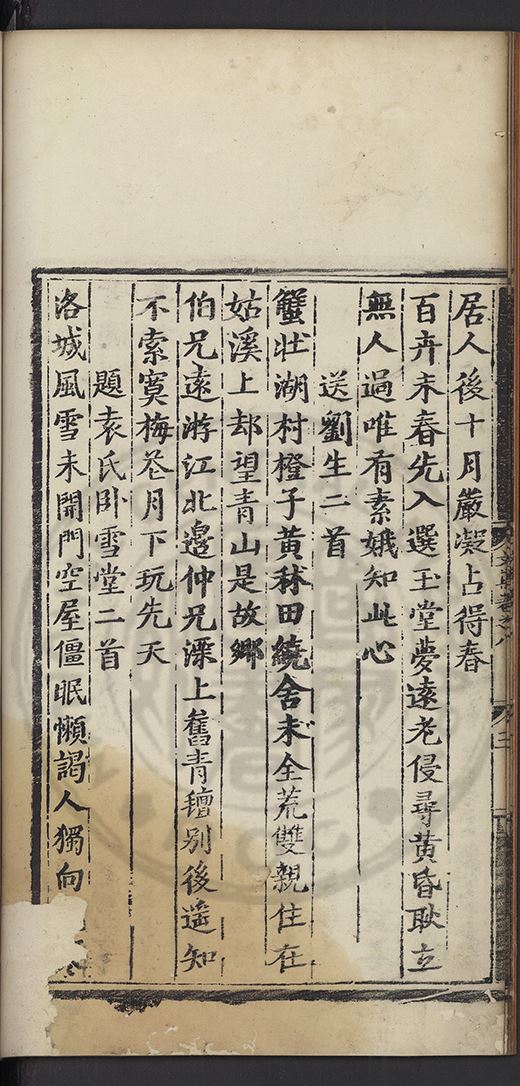 居人後十月嚴凝占得春
百卉未春先入選玉堂夢遠老侵尋黃昏耿立
無人過唯有素娥知此心
送劉生二首
蟹壯湖村橙子黃秫田繞舍未全荒雙親住在
姑溪上却望青山是故鄉
伯兄遠游江北邉仲兄溧上舊青氊別後遥知
不索寞梅花月下玩先天
題袁氏卧雪堂二首
洛城風雪未開門空屋僵眠懶謁人獨向